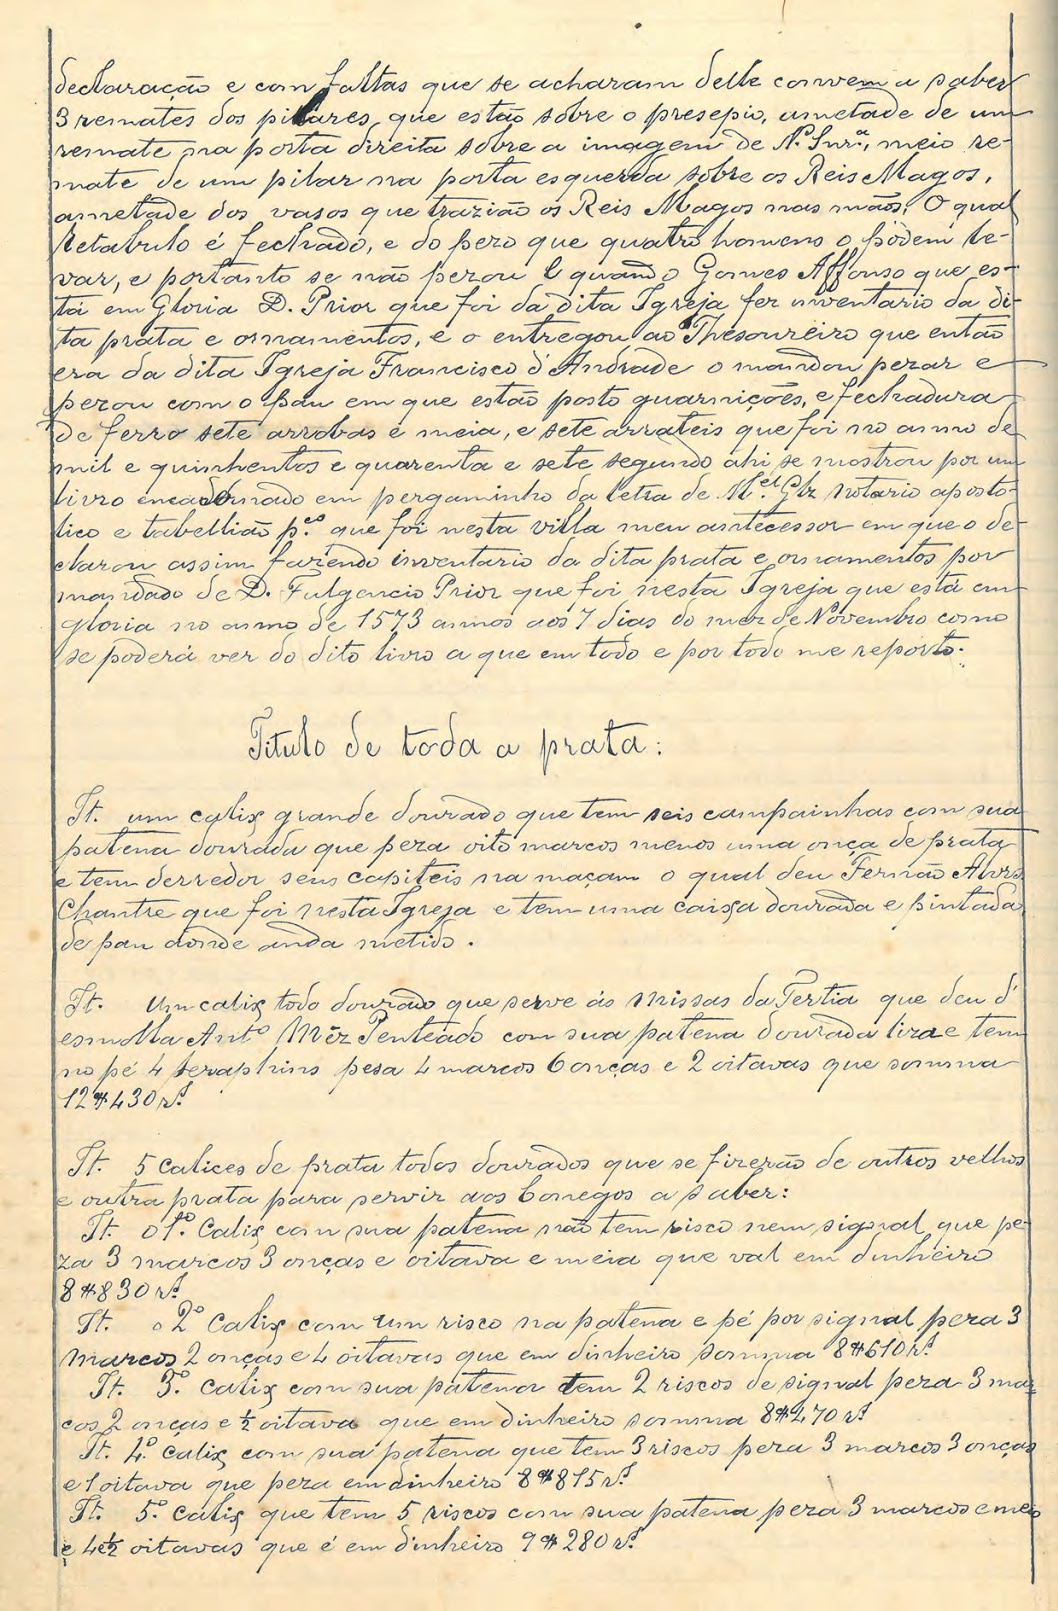 declaração e com faltas que se acharam delle convem a saber
3 remates dos pilares que estão sobre o presepio, ametade de um
remate na porta direita sobre a imagem de N. Snrª, meio re-
mate de um pilar na porta esquerda sobre os Reis Magos,
ametade dos vasos que trazião os Reis Magos nas mãos. O qual
Retabulo é fechado, e do pezo que quatro homens o pódem le-
var, e portanto se não pezou e quando Gomes Affonso que es-
tá em Gloria D. Prior que foi da dita Igreja fez inventario da di-
ta prata e ornamentos, e o entregou ao Thesoureiro que então
era da dita Igreja Francisco d'Andrade o mandou pezar e
pezou com o pau em que estão posto guarnições, e fechadura
de ferro sete arrobas e meia, e sete arrateis que foi no anno de
mil e quinhentos e quarenta e sete segundo ahi se mostrou por um
livro encadernado em pergaminho da letra de M.el Glz Notario aposto-
lico e tabellião p.co que foi nesta villa meu antecessor em que o de-
clarou assim fazendo inventario da dita prata e ornamentos por
mandado de D. Fulgencio Prior que foi nesta Igreja que está em
gloria no anno de 1573 annos aos 7 dias do mez de Novembro como
se poderá ver do dito livro a que em todo e por todo me reporto.
Titulo de toda a prata:
It. um calix grande dourado que tem seis campainhas com sua
patena dourada que peza oito marcos menos uma onça de prata
e tem derredor seus capiteis na maçam o qual deu Fernão Alvrs
Chantre que foi nesta Igreja e tem uma caixa dourada e pintada
de pau donde anda metido.
It. Um calix todo dourado que serve ás missas da Tertia que deu d'
esmolla Antº Mẽz Penteado com sua patena dourada liza e tem
no pé 4 seraphins pesa 4 marcos 6 onças e 2 oitavas que somma
12$430 rs.
It. 5 Calices de prata todos dourados que se fizerão de outros velhos
e outra prata para servir aos Conegos a saber:
It. o 1º. Calix com sua patena não tem risco nem signal que pe-
za 3 marcos 3 onças e oitava e meia que val em dinheiro
8$830 rs.
It. o 2º Calix com um risco na patena e pé por signal peza 3
marcos 2 onças e 4 oitavas que em dinheiro somma 8$610 rs.
It. 3º. Calix com sua patena tem 2 riscos de signal peza 3 mar-
cos 2 onças e ½ oitava que em dinheiro somma 8$470 rs.
It. 4º. Calix com sua patena que tem 3 riscos peza 3 marcos 3 onças
e 1 oitava que peza em dinheiro 8$815 rs.
It. 5º. Calix que tem 5 riscos com sua patena peza 3 marcos e meio
e 4 e ½ oitavas que é em dinheiro 9$280 rs.